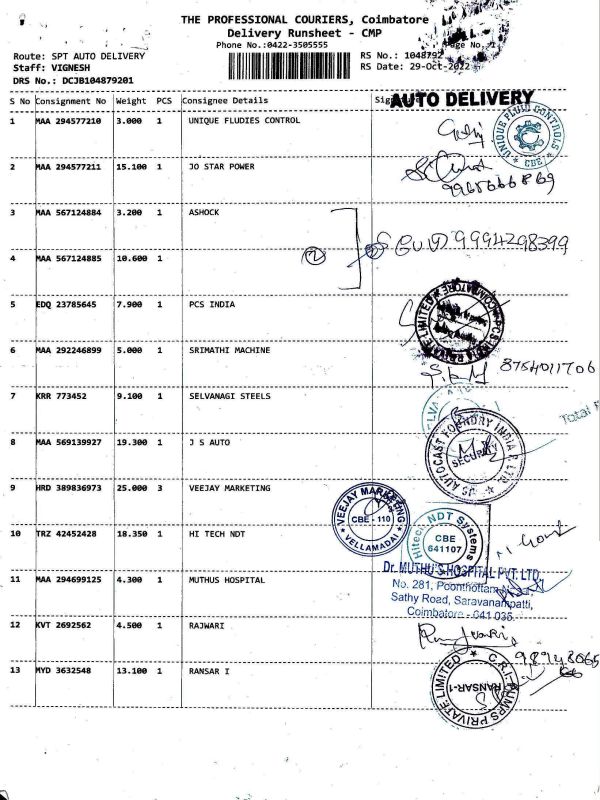 THE PROFESSIONAL COURIERS, Coimbatore
Delivery Runsheet - CMP
Phone No.:0422-3505555
Page No.
Route: SPT AUTO DELIVERY
RS No.: 1048792
Staff: VIGNESH
RS Date: 29-Oct-2022
DRS No.: DCJB104879201
AUTO DELIVERY
S No Consignment No Weight PCS Consignee Details
1 MAA 294577210 3.000 1 UNIQUE FLUDIES CONTROL
UNIQUE FLUID CONTROLS
CBE
2 MAA 294577211 15.100 1 JO STAR POWER
3 MAA 567124884 3.200 1 ASHOCK
9994298399
4 MAA 567124885 10.600 1
2
5 EDQ 23785645 7.900 1 PCS INDIA
6 MAA 292246899 5.000 1 SRIMATHI MACHINE
8754011706
7 KRR 773452 9.100 1 SELVANAGI STEELS
Total
8 MAA 569139927 19.300 1 J S AUTO
JS AUTOCAST FOUNDRY INDIA P. LTD.
SECURITY
9 HRD 389836973 25.000 3 VEEJAY MARKETING
VEEJAY MARKETING
CBE - 110
VELLAMADAI
10 TRZ 42452428 18.350 1 HI TECH NDT
Hitech NDT Systems
CBE
641107
11 MAA 294699125 4.300 1 MUTHUS HOSPITAL
Dr. MUTHU'S HOSPITAL PVT. LTD.
No. 281, Poonthottam
Sathy Road, Saravanampatti,
Coimbatore - 641 035.
12 KVT 2692562 4.500 1 RAJWARI
13 MYD 3632548 13.100 1 RANSAR I
C.R.I. PUMPS PRIVATE LIMITED
RANSAR-1